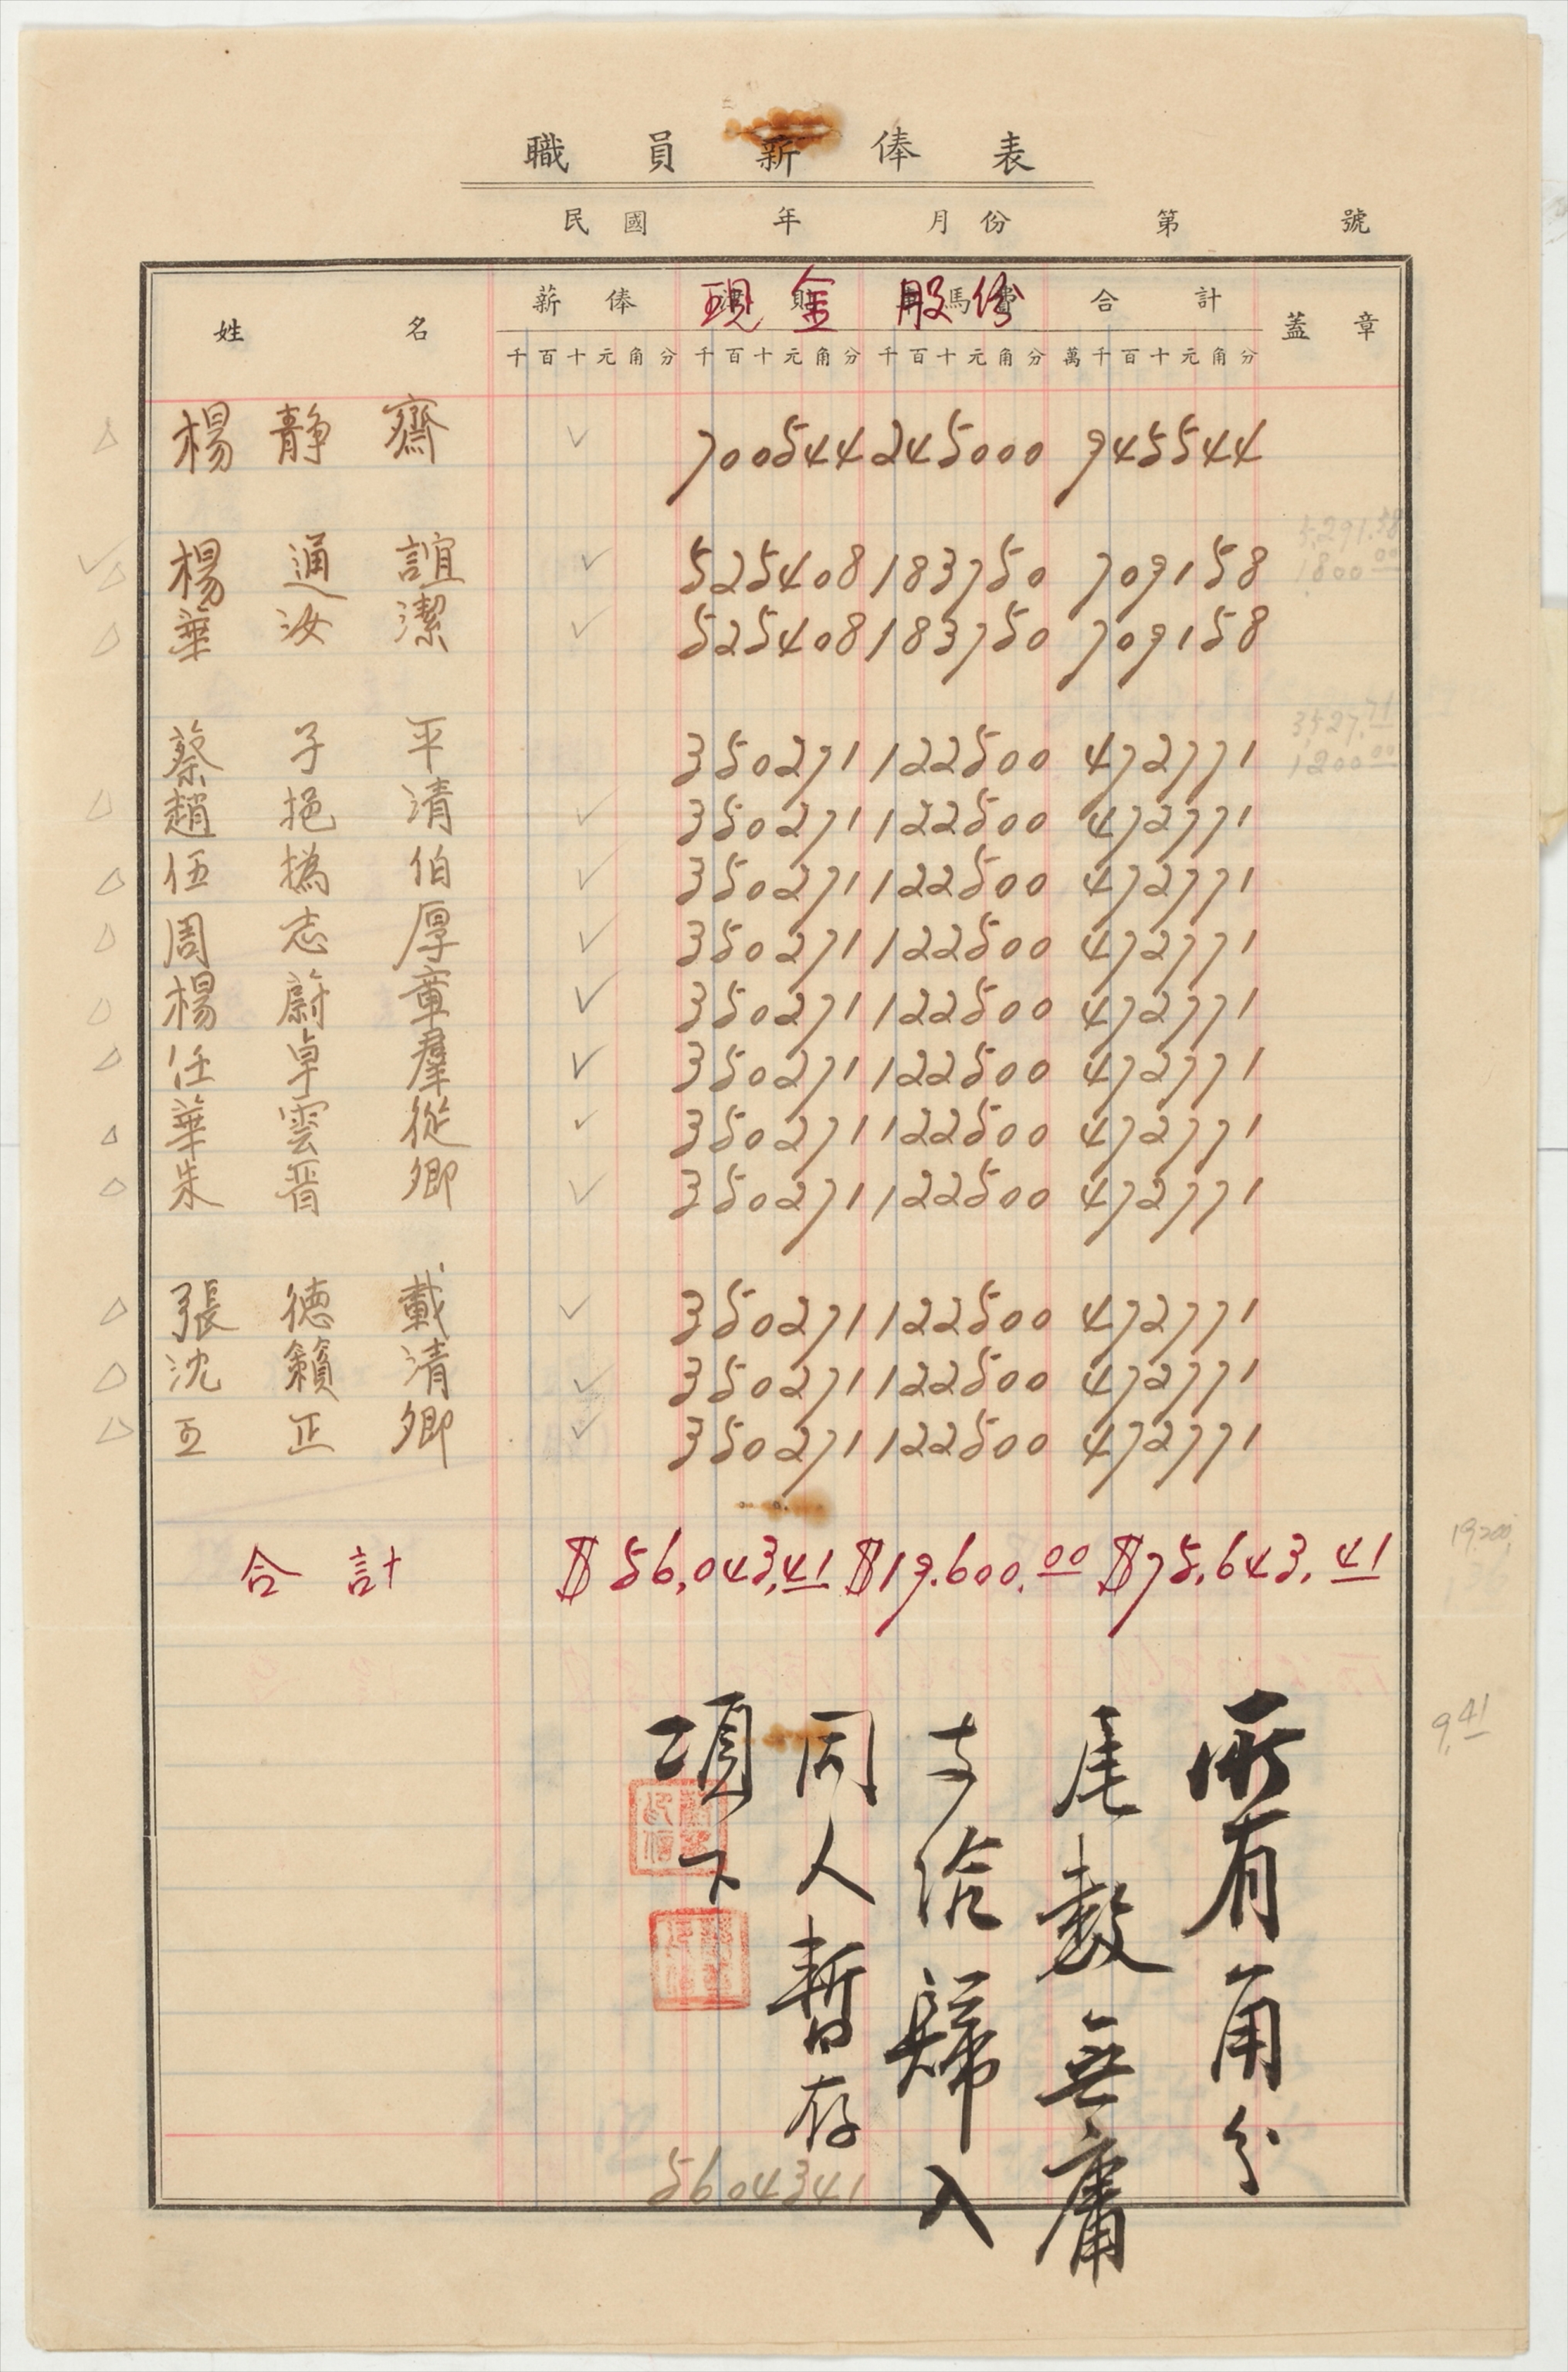 職員薪俸表
民國 年 月份 第 號
姓名 薪俸 現金 股份 合計 蓋章
千百十元角分 千百十元角分 千百十元角分 萬千百十元角分
楊靜齋 700544 245000 945544
楊通誼 525408 183750 709158
華汝潔 525408 183750 709158
蔡子平 350271 122500 472771
趙挹清 350271 122500 472771
伍撝伯 350271 122500 472771
周志厚 350271 122500 472771
楊蔚章 350271 122500 472771
任卓羣 350271 122500 472771
華雲從 350271 122500 472771
朱晉卿 350271 122500 472771
張德載 350271 122500 472771
沈籟清 350271 122500 472771
正卿 350271 122500 472771
合計 $56,043.41 $19,600.00 $75,643.41
5,291.58
1800.00
3,527.71
1200.00
19,200
9.41
所有角分
尾數無庸
支給歸入
同人暫存
項下
5604341